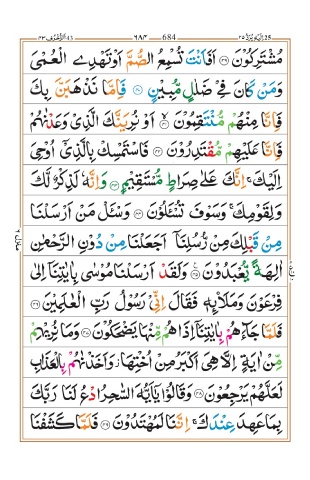 الیہ یردّ ٢٥ 684 ٦٨٤ الزخرف ٤٣
مُشْتَرِكُوْنَ ۝٣٩ اَفَاَنْتَ تُسْمِعُ الصُّمَّ اَوْ تَهْدِی الْعُمْیَ
وَمَنْ كَانَ فِیْ ضَلٰلٍ مُّبِیْنٍ ۝٤٠ فَاِمَّا نَذْهَبَنَّ بِكَ
فَاِنَّا مِنْهُمْ مُّنْتَقِمُوْنَ ۝٤١ اَوْ نُرِیَنَّكَ الَّذِیْ وَعَدْنٰهُمْ
فَاِنَّا عَلَیْهِمْ مُّقْتَدِرُوْنَ ۝٤٢ فَاسْتَمْسِكْ بِالَّذِیْۤ اُوْحِیَ
اِلَیْكَ ۚ اِنَّكَ عَلٰی صِرَاطٍ مُّسْتَقِیْمٍ ۝٤٣ وَاِنَّهٗ لَذِكْرٌ لَّكَ
وَلِقَوْمِكَ ۚ وَسَوْفَ تُسْـَٔلُوْنَ ۝٤٤ وَسْـَٔلْ مَنْ اَرْسَلْنَا
مِنْ قَبْلِكَ مِنْ رُّسُلِنَاۤ اَجَعَلْنَا مِنْ دُوْنِ الرَّحْمٰنِ
اٰلِهَةً یُّعْبَدُوْنَ ۝٤٥ وَلَقَدْ اَرْسَلْنَا مُوْسٰی بِاٰیٰتِنَاۤ اِلٰی
فِرْعَوْنَ وَمَلَا۟ىِٕهٖ فَقَالَ اِنِّیْ رَسُوْلُ رَبِّ الْعٰلَمِیْنَ ۝٤٦
فَلَمَّا جَآءَهُمْ بِاٰیٰتِنَاۤ اِذَا هُمْ مِّنْهَا یَضْحَكُوْنَ ۝٤٧ وَمَا نُرِیْهِمْ
مِّنْ اٰیَةٍ اِلَّا هِیَ اَكْبَرُ مِنْ اُخْتِهَا ؗ وَاَخَذْنٰهُمْ بِالْعَذَابِ
لَعَلَّهُمْ یَرْجِعُوْنَ ۝٤٨ وَقَالُوْا یٰۤاَیُّهَ السّٰحِرُ ادْعُ لَنَا رَبَّكَ
بِمَا عَهِدَ عِنْدَكَ ۚ اِنَّنَا لَمُهْتَدُوْنَ ۝٤٩ فَلَمَّا كَشَفْنَا